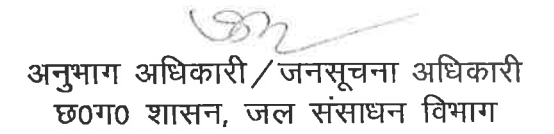 अनुभाग अधिकारी / जनसूचना अधिकारी
छ0ग0 शासन, जल संसाधन विभाग